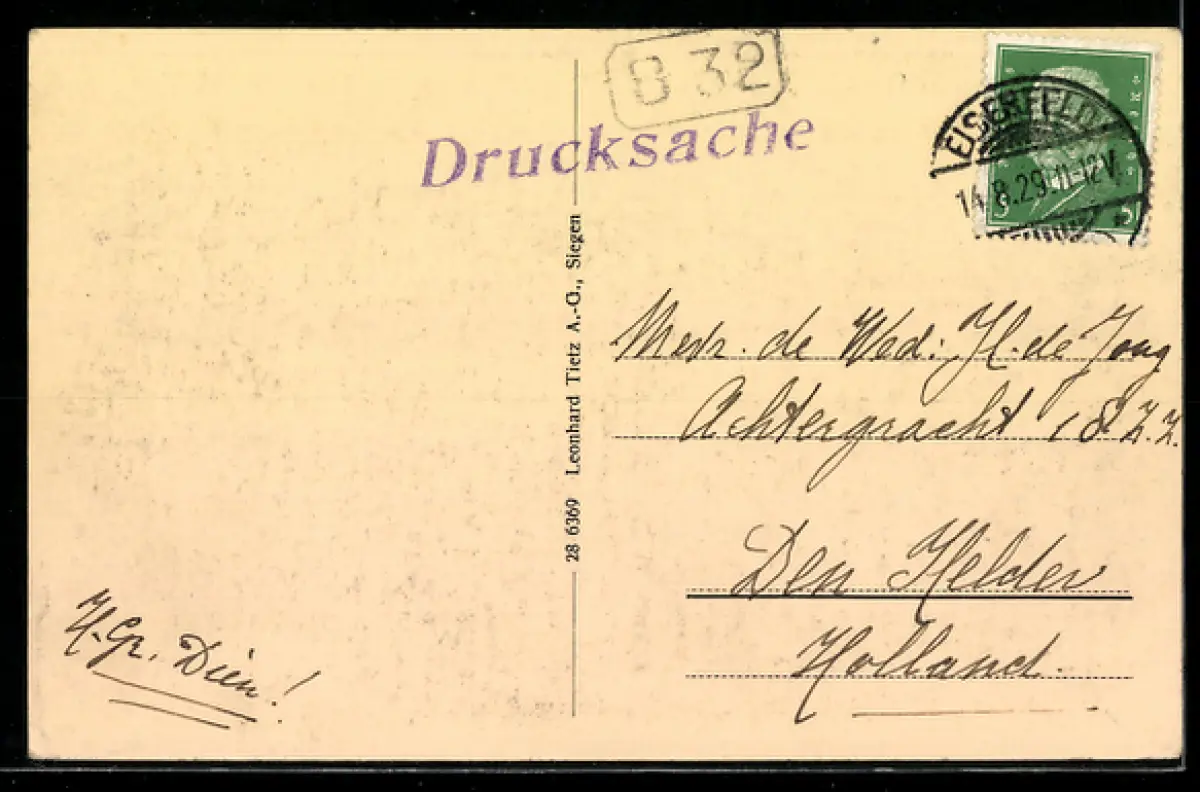 B 32
Drucksache
EISERFELD
14.8.29.11-12V.
5 5
28 6369 Leonhard Tietz A.-G., Siegen
Mevr. de Wed: H. de Jong
Achtergracht 18 Z.Z.
Den Helder
Holland.
H. Gr. Dien!